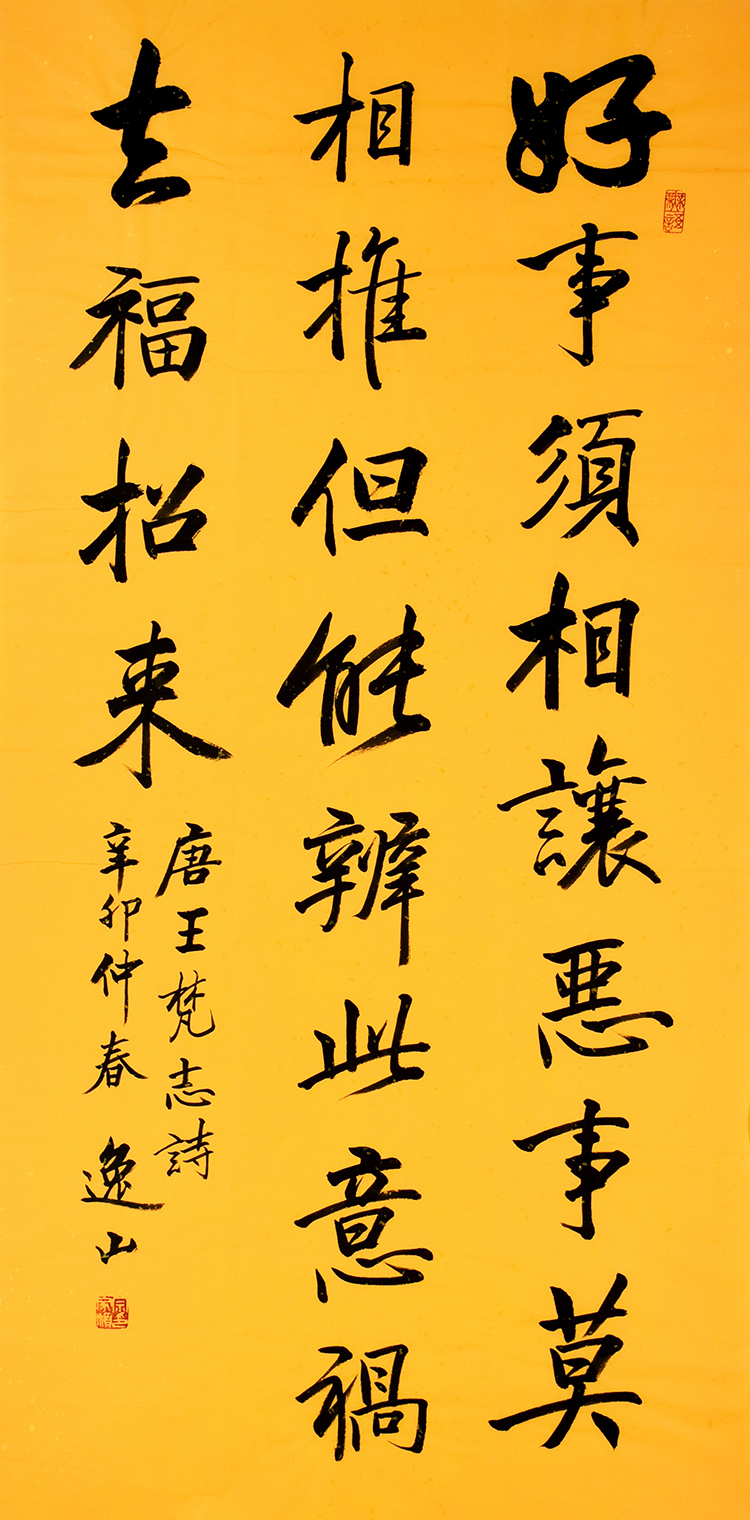 好事須相讓惡事莫
相推但能辦此意禍
去福招来
唐王梵志詩
辛卯仲春 逸山